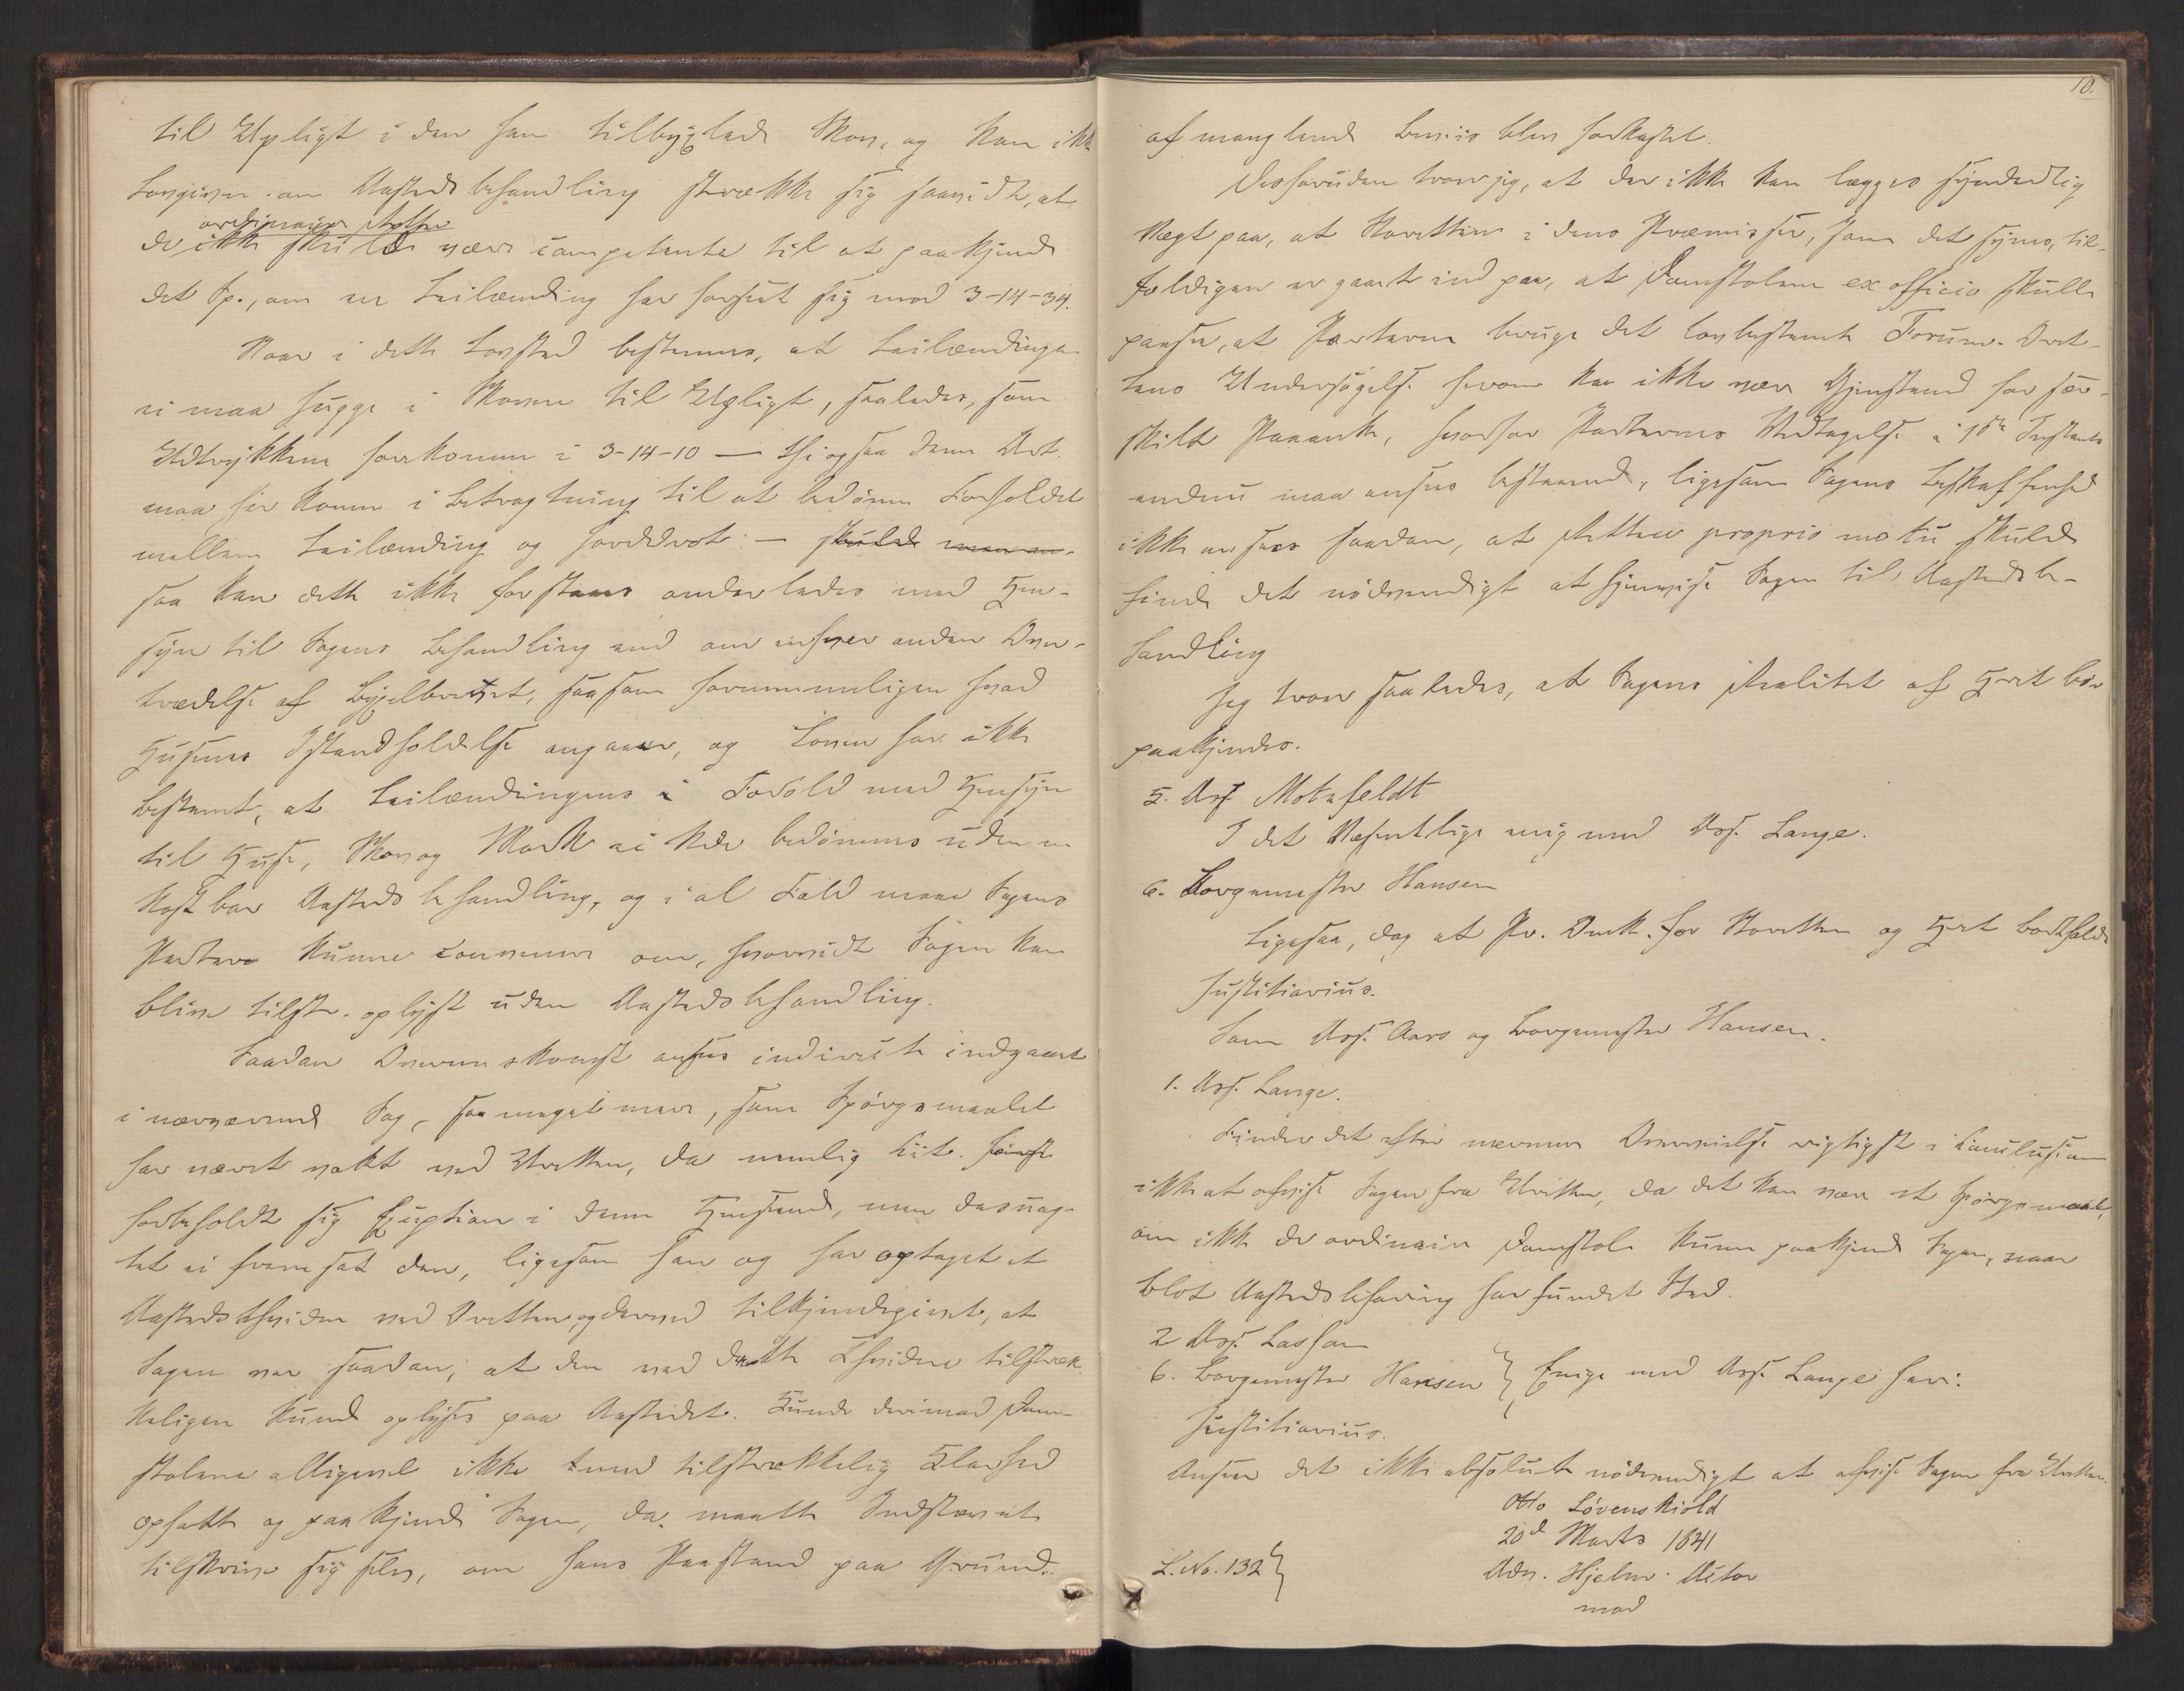 til Upligt i den han tilbyxlede Skov, og kan ikke
Lovgivn. om Aastedsbehandling strække sig saavidt, at
ordinaire Retter
de ikke skulde være competente til at paakjende
det Sp., om en Leilænding har forseet sig mod 3-14-34.
Naar i dette Lovsted bestemmes, at Leilændinge
ei maa hugge i Skoven til Upligt, saaledes, som
Udtrykkene forekomme i 3-14-10 — thi ogsaa denne Art.
maa her komme i Betragtning til at bedømme Forholdet
mellem Leilænding og Jorddrot — skulde
saa kan dette ikke forstaaes anderledes med Hen-
syn til Sagens Behandling end om enhver anden Over-
trædelse af Bygselbrevet, saasom fornemmeligen hvad
Husenes Istandholdelse angaaer, og Loven har ikke
bestemt, at Leilændingens Forhold med Hensyn
til Huse, Skov og Mark ei kan bedømmes uden en
kostbar Aastedsbehandling, og i al Fald maa Sagens
Parter kunne convenere om, hvorvidt Sagen kan
blive tilstr. oplyst uden Aastedsbehandling.
Saadan Overenskomst ansees indirecte indgaaet
i nærværende Sag, saa meget mere, som Spørgsmaalet
har været vakt ved Uretten, da nemlig Cit.
forbeholdt sig Exception i denne Henseende, men desuag-
tet ei fremsat den, ligesom han og har optaget et
Aastedsthvidne ved Retten, og derved tilkjendegivet, at
Sagen var saadan, at den ved dette Thvidne tilstræk-
keligen kunde oplyses paa Aastedet. Kunde derimod Dom-
stolene alligevel ikke med tilstrækkelig Klarhed
opfatte og paakjende Sagen, da maatte Indstævnte
tilskrive sig selv, om hans Paastand paa Grund
10.
af manglende Beviis blev forkastet.
Desforuden troer jeg, at der ikke kan lægges synderlig
Vægt paa, at Stiftsretten i dens Præmisser, som det synes, til-
fældigen er gaaet ind paa, at Domstolene ex officio skulle
paasee, at Parterne bruge det lovbestemte Forum. Ret-
tens Undersøgelse herom kan ikke være Gjenstand for sær-
skilt Paaanke, hvorfor Parternes Vedtagelse i 1ste Instants
endnu maa ansees bestaaende, ligesom Sagens Beskaffenhed
ikke ansees saadan, at Retten proprio motu skulde
finde det nødvendigt at henvise Sagen til Aastedsbe-
handling
Jeg troer saaledes, at Sagens Realitet af Hret bør
paakjendes.
5. Ass. Motzfeldt
I det Væsentlige enig med Ass. Lange.
6. Borgemester Hansen
Ligesaa, dog at Pr. Omk. for Stiftsretten og Hret bortfalde
Justitiarius.
Som Ass. Aars og Borgemester Hansen.
1. Ass. Lange.
Finder det efter nærmere Overveielse rigtigst i Conclusionen
ikke at afvise Sagen fra Uretten, da det kan være et Spørgsmaal,
om ikke de ordinaire Domstole kunne paakjende Sagen, naar
blot Aastedsbefaring har fundet Sted.
2 Ass. Lasson
6. Borgemester Hansen } Enige med Ass. Lange heri.
Justitiarius.
Anseer det ikke absolut nødvendigt at afvise Sagen fra Uretten.
Otto Løvenskiold
20d Marts 1841
L. No. 132 }
Adv. Hjelm Actor
mod